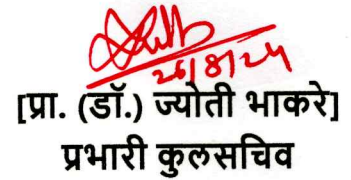 26/8/24
[प्रा. (डॉ.) ज्योती भाकरे]
प्रभारी कुलसचिव